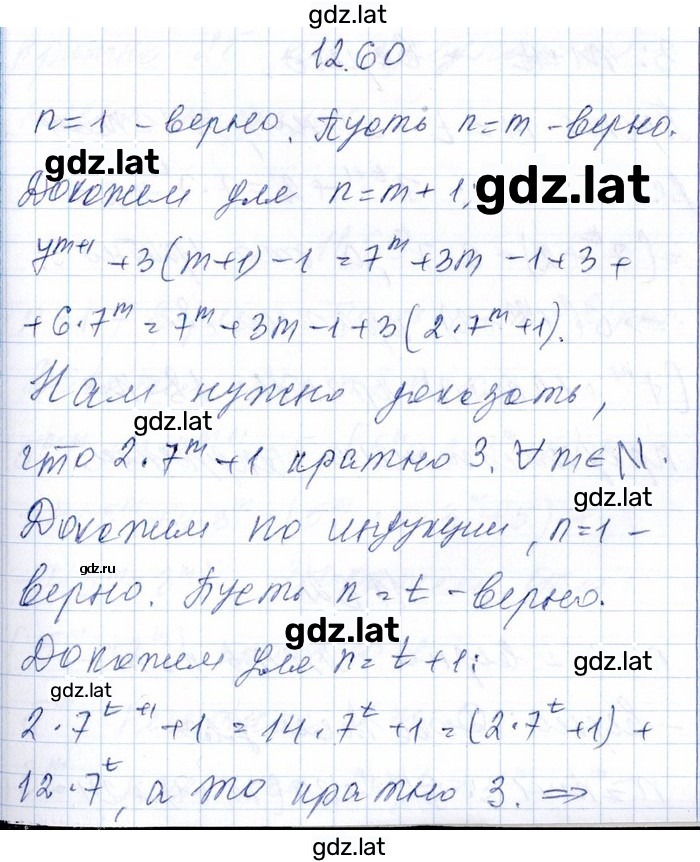 gdz.lat
12.60
n=1 - верно. Пусть n=m - верно.
gdz.lat
gdz.lat
Докажем для n=m+1;
7^{m+1} +3(m+1)-1=7^m+3m-1+3+
+6·7^m=7^m+3m-1+3(2·7^m+1).
Нам нужно доказать,
gdz.lat
что 2·7^m+1 кратно 3. ∀m∈N.
gdz.lat
Докажем по индукции, n=1 -
gdz.ru
верно. Пусть n=t - верно.
gdz.lat
Докажем для n=t+1:
gdz.lat
gdz.lat
2·7^{t+1}+1=14·7^t+1=(2·7^t+1)+
12·7^t, а это кратно 3. ⇒
gdz.lat